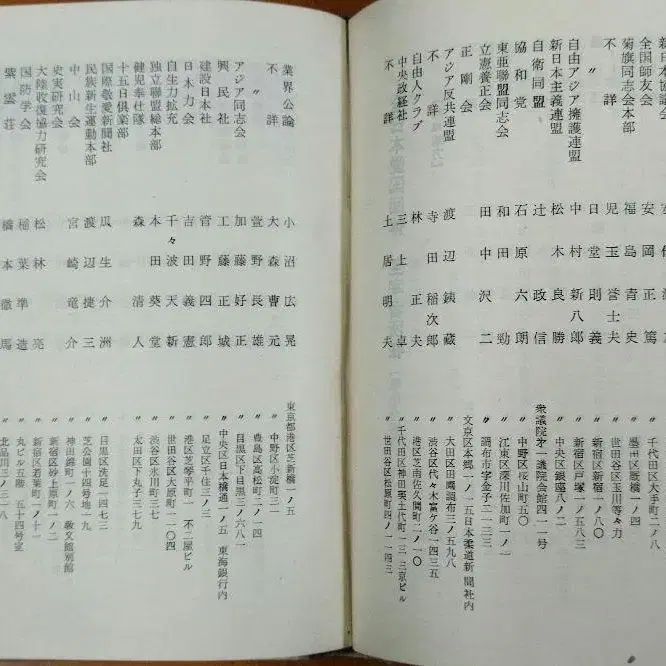 全国師友会 安岡正篤
菊旗同志会本部 福島青史 〃 墨田区厩橋一ノ四
不詳 児玉誉士夫 〃 世田谷区玉川等々力
〃 日堂則義 〃 新宿区新宿一ノ八〇
自由アジア擁護連盟 中村新八郎 〃 新宿区戸塚一ノ五八三
新日本主義連盟 松木良勝 〃 中央区銀座八ノ二
自衛同盟 辻政信 衆議院第一議院会館四一一号
協和党 石原六朗 〃 中野区桜山町五〇
東亜聯盟同志会 和田勁 〃 江東区深川深佐加町二ノ一
立憲養正会 田中沢二 〃 調布市字金子二一三三
正剛会 文京区本郷一ノ一五日本柔道新聞社内
アジア反共連盟 渡辺銕蔵 〃 大田区田園調布三ノ五九八
不詳 寺田稲次郎 〃 渋谷区代々木富ケ谷一四三五
自由人クラブ 林正夫 〃 港区芝南佐久間町二ノ一〇
中央政経社 三上卓 〃 千代田区神田 土代町一三 三京ビル
不詳 土居明夫 〃 世田谷区松原町四ノ一一四三
業界公論 小沼広晃 東京都港区芝新橋一ノ五
不詳 大森曹元 〃 中野区小淀町二一
〃 萱野長雄 〃 豊島区高松町二ノ一四
アジア同志会 加藤好正 〃 目黒区下目黒三ノ六八一
興民社 工藤正城 〃 中央区日本橋通一ノ五 東海銀行内
建設日本社 菅野四郎 〃 足立区千住三ノ三
日本力会 吉田義憲 〃 港区芝琴平町一 不二屋ビル
自生力拡充 千々波天新 〃 世田谷区大原町一二〇四
独立聯盟総本部 本田葵堂 〃 渋谷区氷川町三七
健児奉仕隊 森清人 〃 太田区下丸子二三七九
十五日倶楽部
国際敬愛新聞社 瓜生介洲 〃 目黒区洗足一四七三
民族新生運動本部 渡辺捷三 〃 芝公園十四号地一九
中山会 宮崎竜介 〃 神田錦町一ノ六 敬文館別館
史実研究会 松林亮 〃 新宿区砂土原町二ノ二
大陸収復協力研究会 〃 新宿区若葉町一ノ十一
国防学会 稲葉準造 〃 丸ビル五階 五十四号室
紫雲荘 橋本徹馬 〃 北品川三ノ三一八